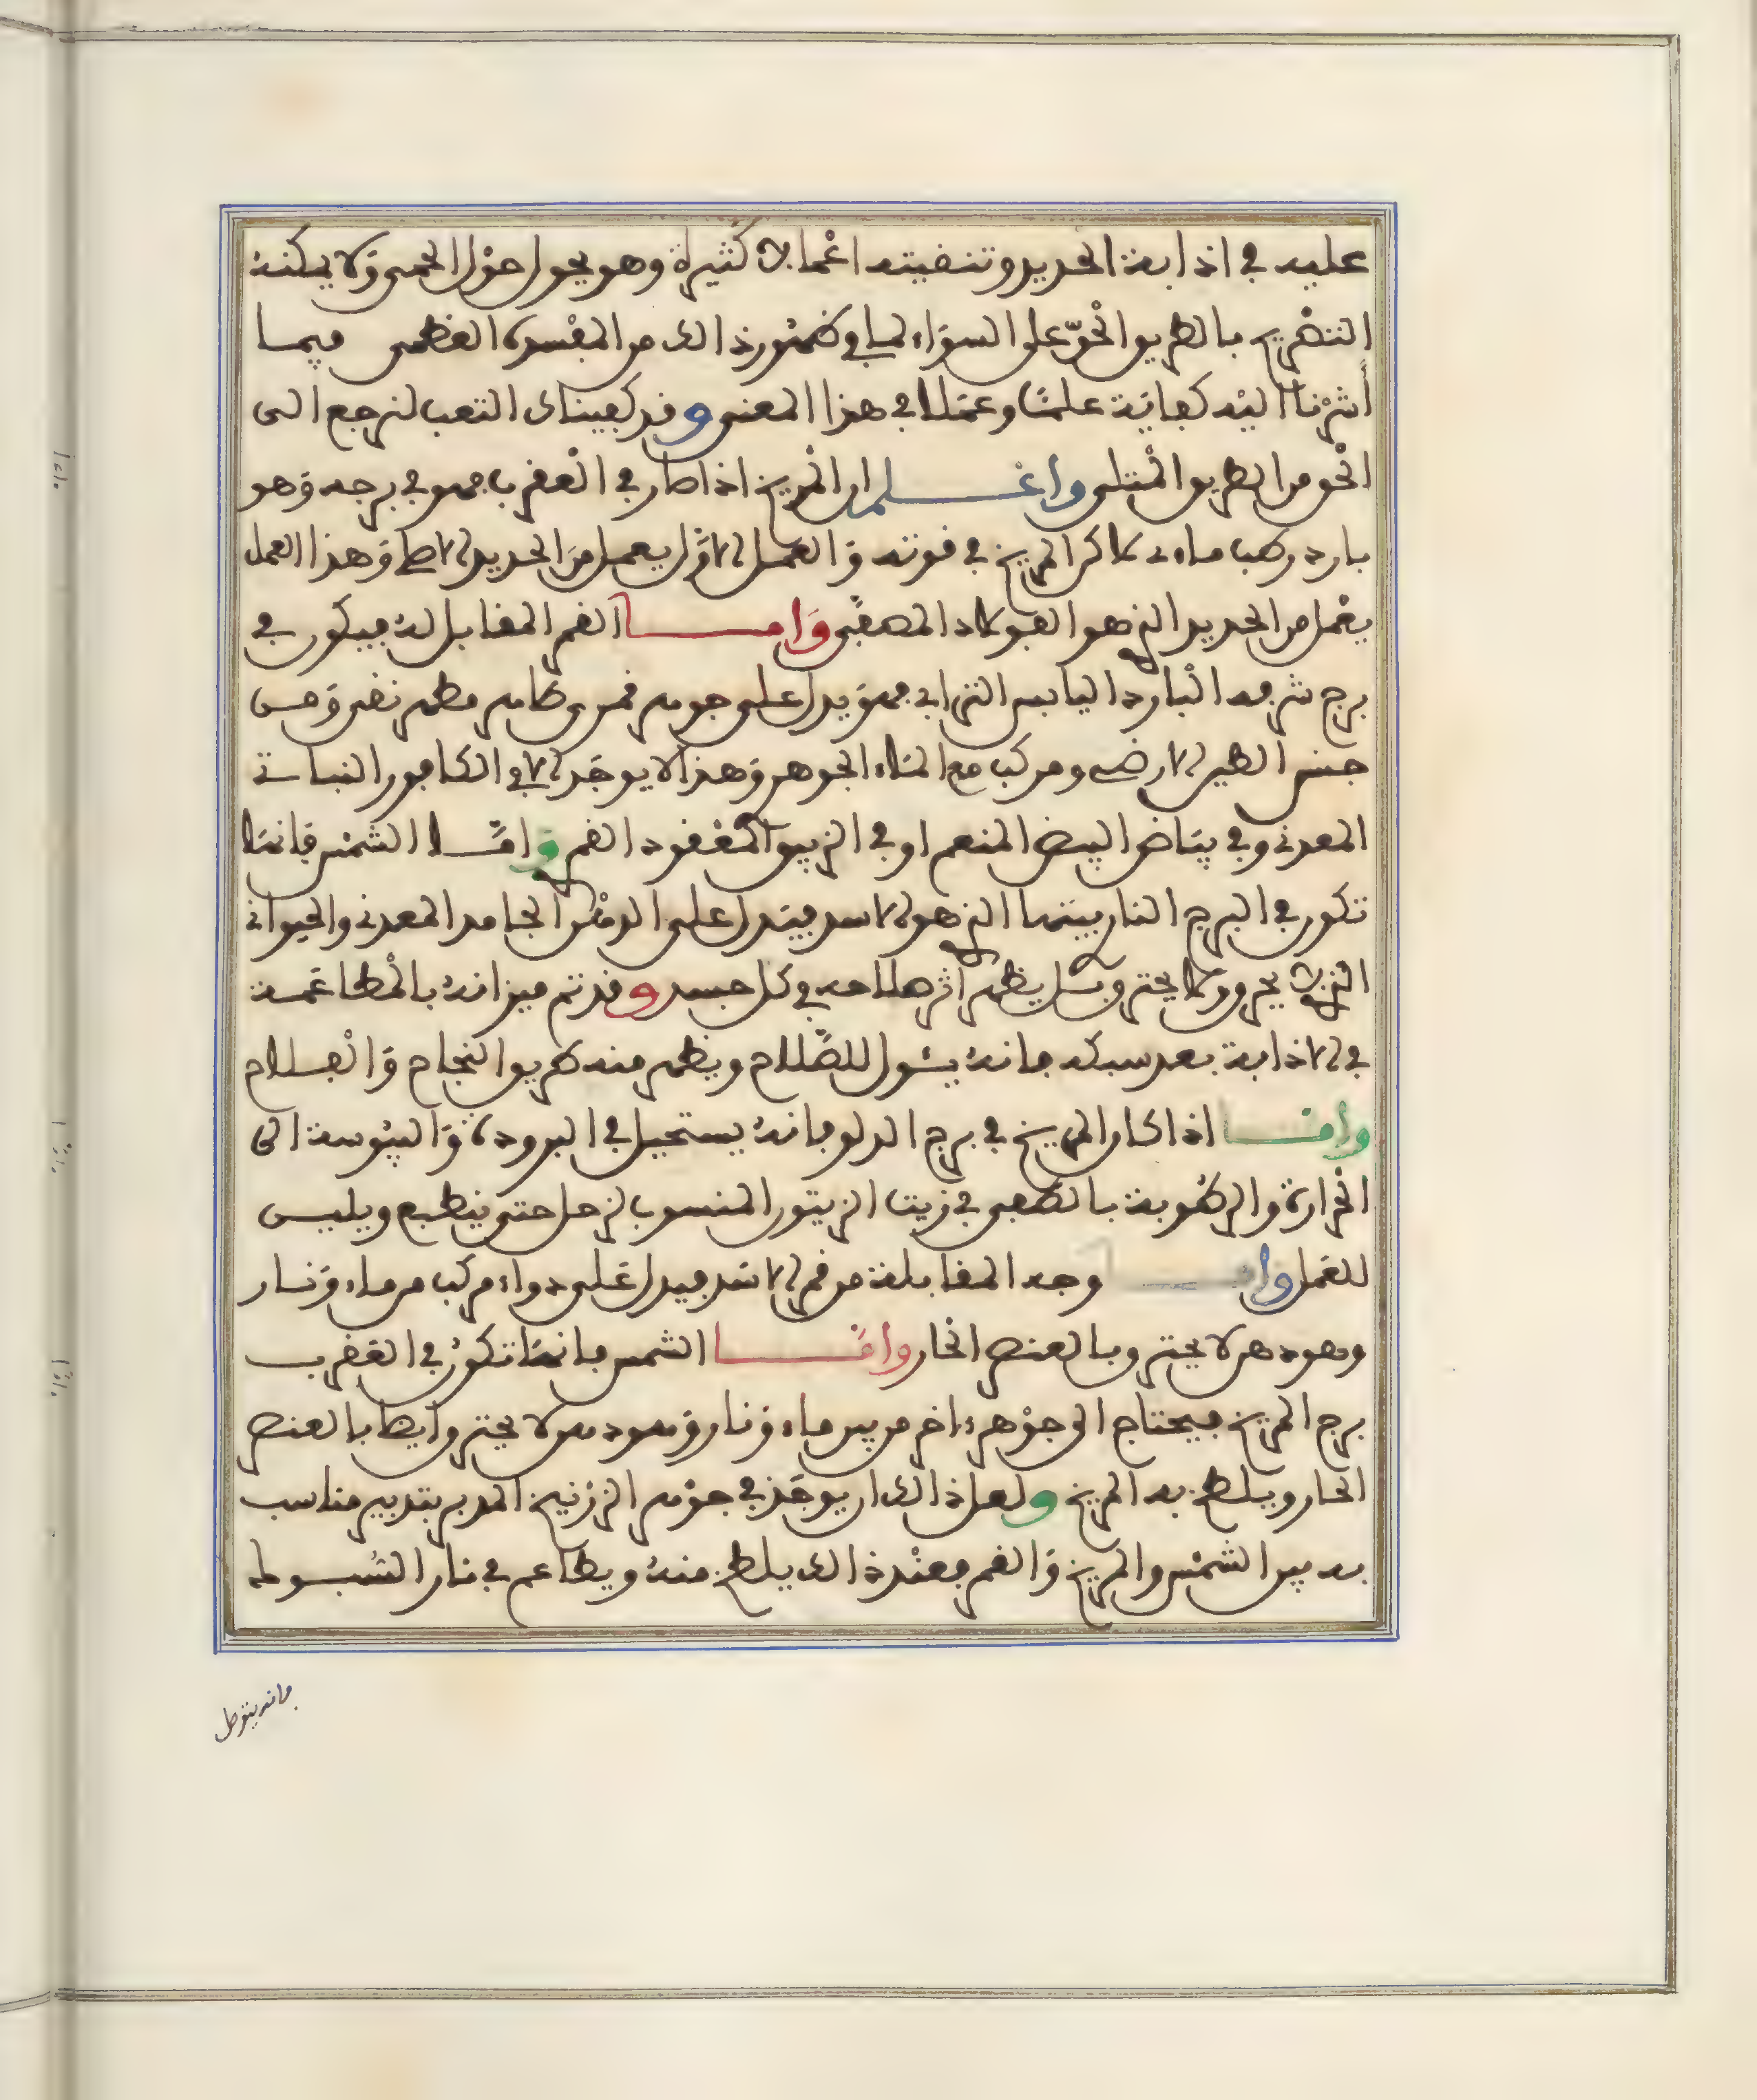 عليه في اذابة الحديد وتنقيته اعمالا كثيرة وهو يحول حول الحمى ولا يمكنه
التصريح بالطريق الحق على السواء لما في ظهور ذالك من المفسدة العظمى فيما
أشرنا اليه كفاية علما وعملا في هذا المعنى وقد كفيناك التعب لترجع الى
الحق من الطريق المثلى واعلم ان المريخ اذا صار في العقرب فهو في برجه وهو
بارد رطب ماءى لاكن المريخ في قوته والعمل الاول يعمل من الحديد الاصلى وهذا العمل
يعمل من الحديد الذي هو الفولاد المصفى واما القمر المقابل له فيكون في
برج شرفه البارد اليابس الترابي فهو يدل على جوهر قمرى طاهر مطهر نقى وهى
جنس الطين الارضى ومركب مع الماء الجوهر وهذا لا يوجد الا في الكافور النباتى
المعدنى وفي بياض البيض المنعم او في الزيبق المعقود القمر واما الشمس فانها
تكون في البرج النار بيتها الذي هو الاسد فيدل على الدهن الجامد المعدنى والحيوانى
الذي لا يحرق ولا يحترق وبل يظهر أثر صلاحه في كل جسد وقد تم ميزانه بالمطاعمة
في الاذابة بعد سبكه فانه يئول للصلاح ويظهر منه طريق النجاح والفلاح
واما اذا كان المريخ في برج الدلو فانه يستحيل في البرودة واليبوسة الى
الحرارة والرطوبة بالطفى في زيت الزيتون المنسوب لزحل حتى ينطبع ويليـن
للعمل واما وجه المقابلة من قمر الاسد فيدل على دواء مركب من ماء ونار
وهو دهن لا يحترق بالعنصر الحار واما الشمس فانها تكون في العقرب
برج المريخ فيحتاج الى جوهر ءاخر من بين ماء ونار وهو دهن لا يحترق وايضا بالعنصر
الحار ويلطخ به المريخ ولعل ذالك ان يوجد في جوهر الزرنيخ المدبر بتدبير مناسب
به بين الشمس والمريخ والقمر فعند ذالك يلطخ منه ويطاعم في نار السبوك
فانه يتوصل